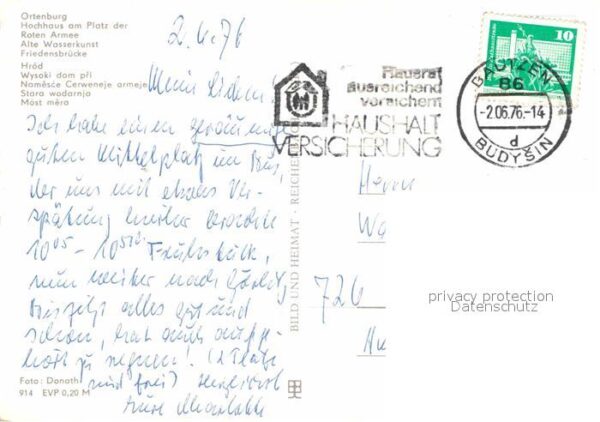 Ortenburg
Hochhaus am Platz der
Roten Armee
Alte Wasserkunst
Friedensbrücke
Hród
Wysoki dom při
Naměsće Cerwjeneje armeje
Stara wodarnja
Móst měra
2.6.76
Meine Lieben!
Ich habe einen geräumigen
guten Mittelplatz im Bus,
der uns mit etwas Ver-
spätung hierher brachte
10 05 - 10 50 Frühstück,
nun weiter nach Görlitz
Bis jetzt alles gut und
schön, hat auch aufge-
hört zu regnen! (2 Plätze
sind frei) Herzlichst
Eure
Foto: Donath
914 EVP 0,20 M
BILD UND HEIMAT · REICHENBACH
Hausrat
ausreichend
versichern
HAUSHALT
VERSICHERUNG
BAUTZEN
86
-2.06.76.-14
d
BUDYŠIN
10
Herrn
Wa
726
privacy protection
Datenschutz